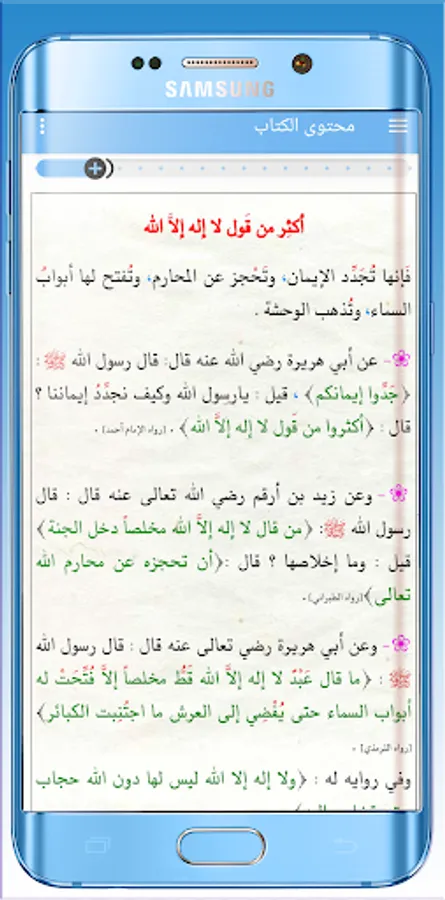 SAMSUNG
محتوى الكتاب
أكثِر من قَول لا إله إلاَّ الله
فَإنها تُجَدِّد الإيمان، وتَحْجز عن المحارم، وتُفتح لها أبوابُ
السماء، وتُذهب الوحشة .
- عن أبي هريرة رضي الله عنه قال: قال رسول الله ﷺ :
﴿جَدَّوا إيمانكم﴾ ، قيل : يارسول الله وكيف نجدَّدُ إيماننا ؟
قال : ﴿أكثروا من قَول لا إله إلاَّ الله﴾ . [رواه الإمام أحمد] .
- وعن زيد بن أرقم رضي الله تعالى عنه قال : قال
رسول الله ﷺ: ﴿من قال لا إله إلاَّ الله مخلصاً دخل الجنة﴾
قيل : وما إخلاصها ؟ قال :﴿أن تحجزه عن محارم الله
تعالى﴾[رواه الطبراني] .
- وعن أبي هريرة رضي تعالى عنه قال : قال رسول الله
ﷺ : ﴿ما قال عَبْدٌ لا إله إلاَّ الله قَطُّ مخلصاً إلاَّ فُتِّحَتْ له
أبواب السماء حتى يُفْضِي إلى العرش ما اجتُنِبت الكبائر﴾
[رواه الترمذي] .
وفي روايه له : ﴿ولا إله إلا الله ليس لها دون الله حجاب